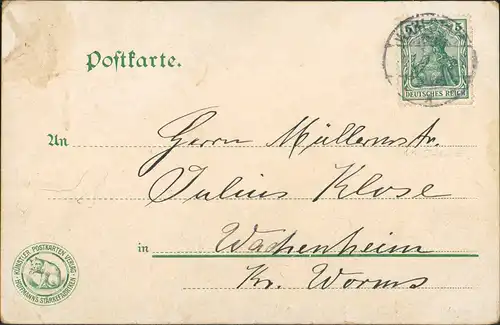 Postkarte.
5 5
DEUTSCHES REICH
An Herrn Müllermstr.
Julius Klose
in Wachenheim
Kr. Worms
KÜNSTLER POSTKARTEN VERLAG
HOFFMANN'S STÄRKEFABRIKEN